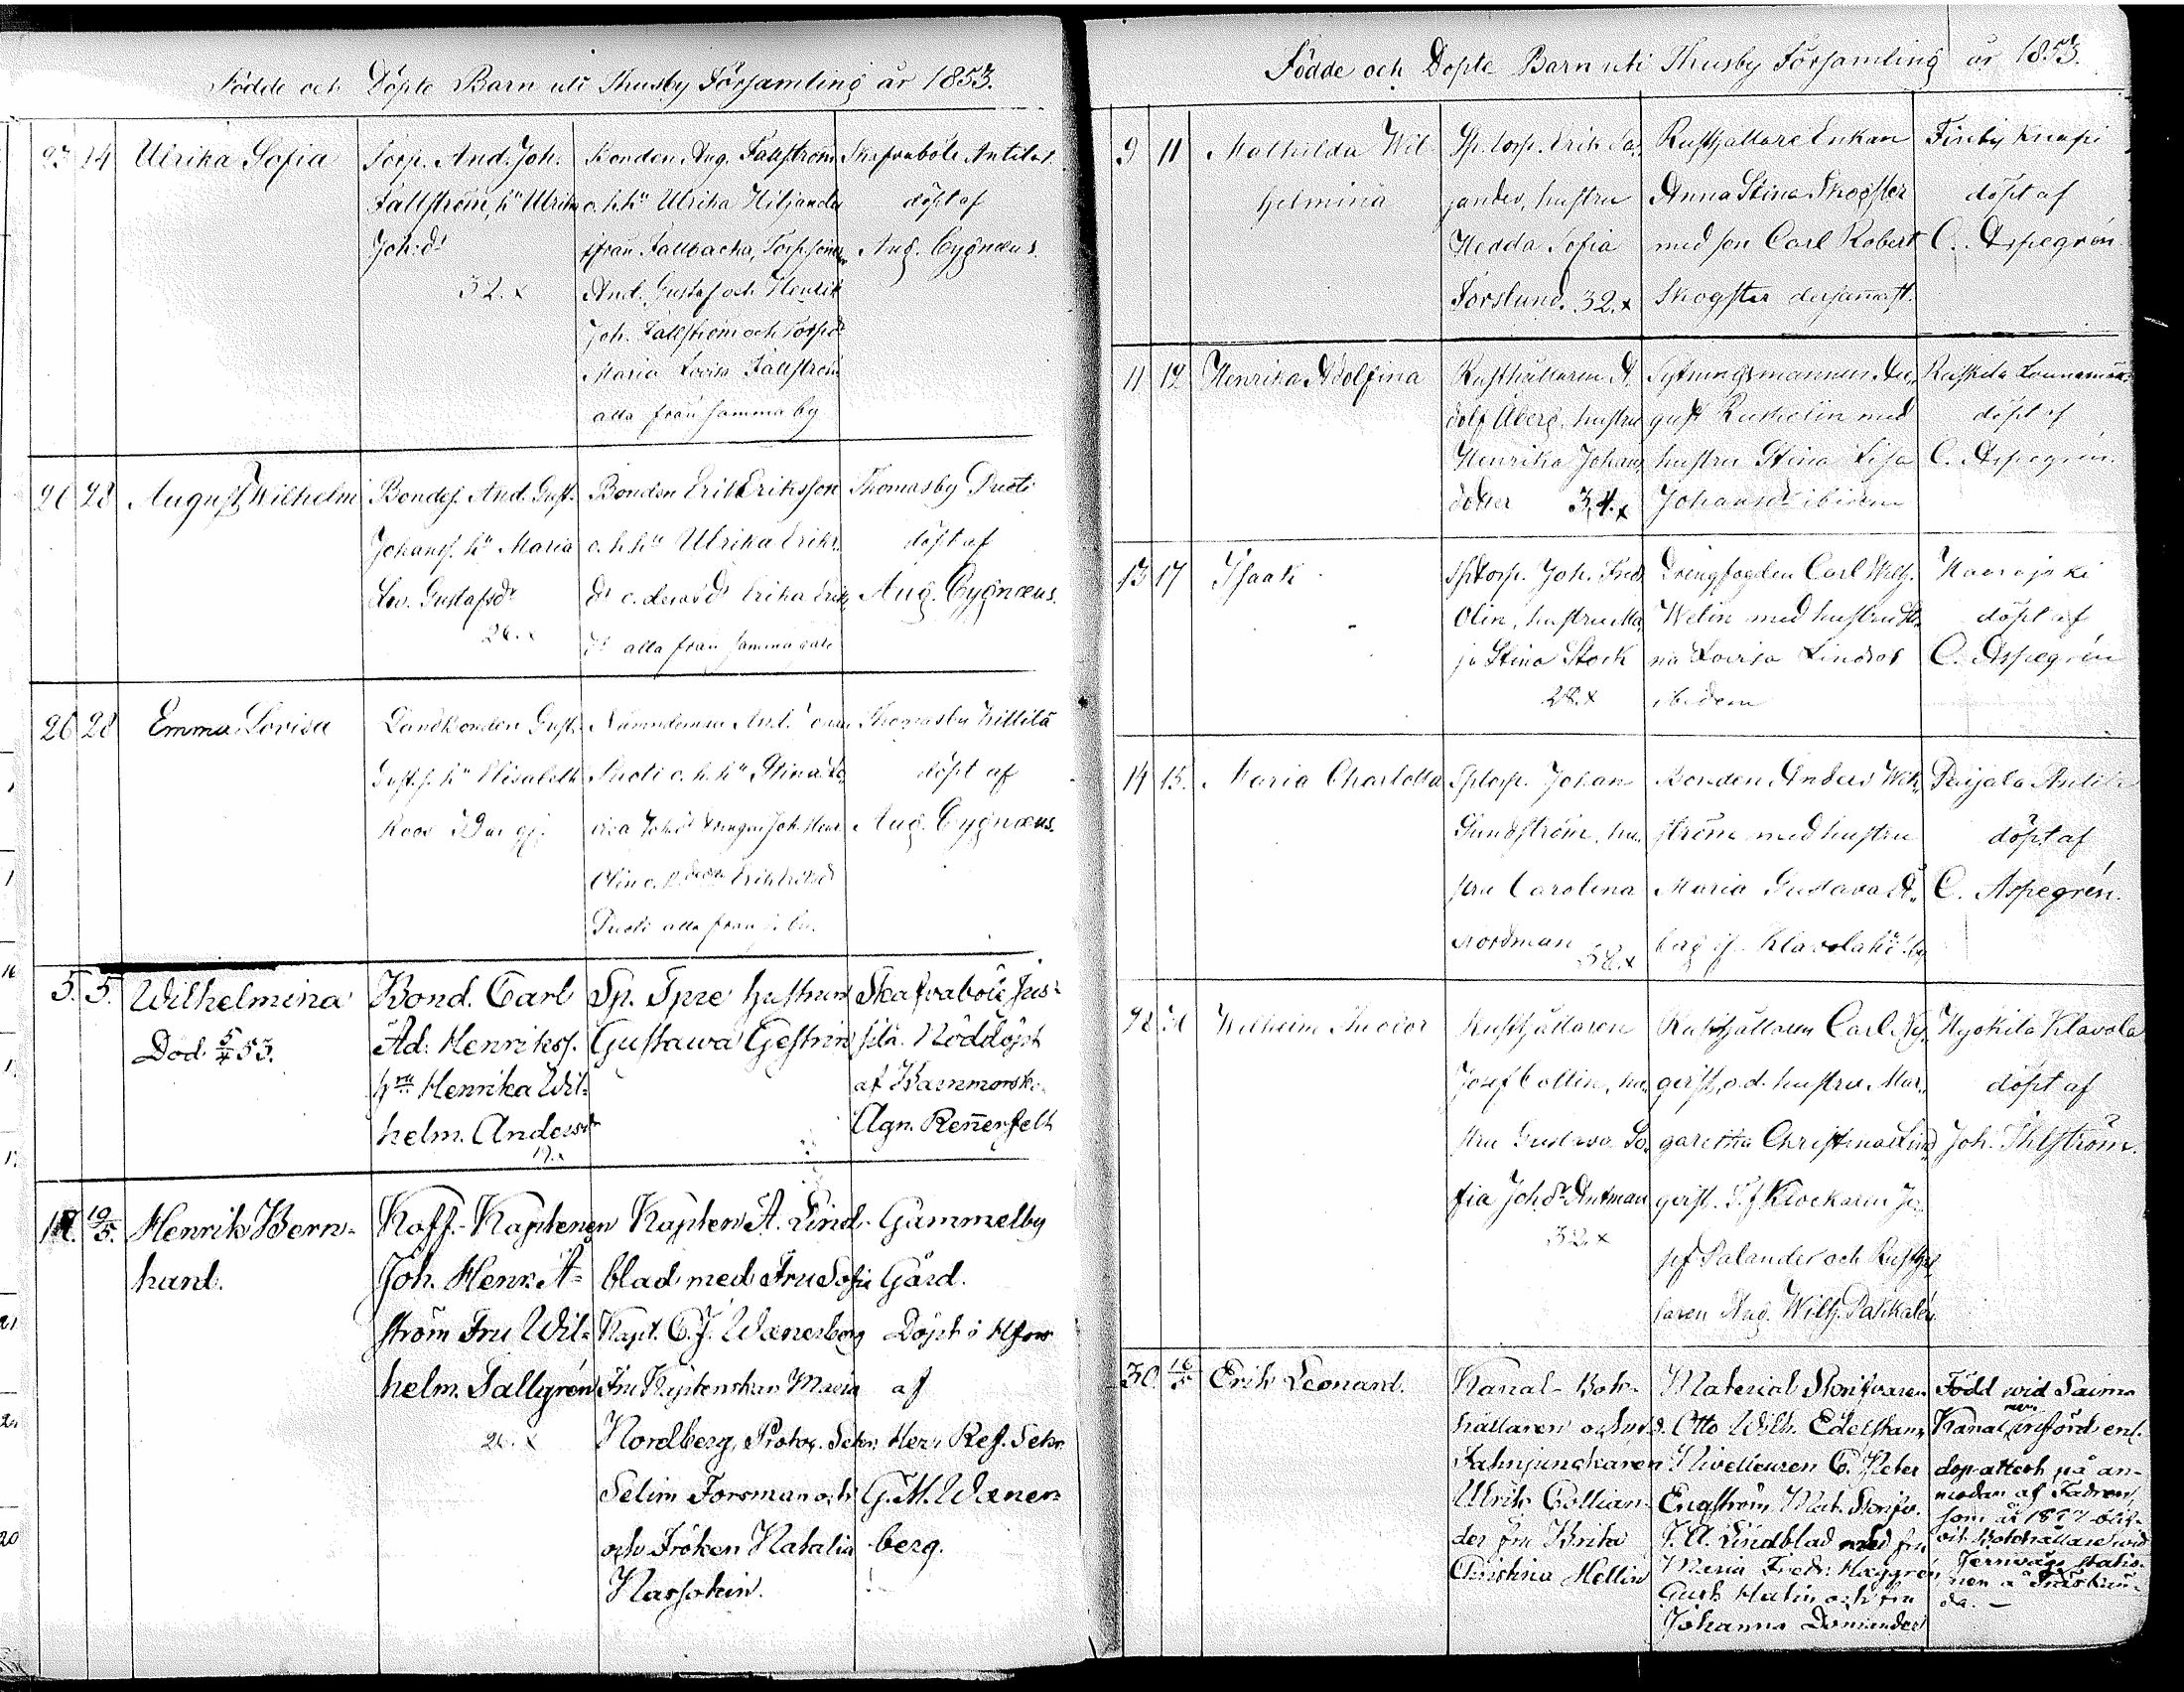 Födde och Döpte Barn uti Thusby Församling år 1853.
23 24 Ulrika Sofia
Torp. And. Joh.
Fallström, hu Ulrika
Joh:dr
32. x
Bonden Aug. Fallström
o. h. hu Ulrika Hiljander
ifrån Fallbacka, Torp.sönerne
And. Gustaf och Henrik
Joh. Fallström och Torp.dr
Maria Lovisa Fallström
alla från samma by
Skafvaböle Antilas
döpt af
Aug. Cygnæus.
28 August Wilhelm
Bondes. And. Gust.
Johanss. hu Maria
Lov. Gustafsdr
26. x
Bonden Erik Eriksson
o. h. hu Ulrika Eriks
dr o. deras dr Erika Eriks
dr alla från samma
Thomasby Prusti
döpt af
Aug. Cygnæus.
26 28 Emma Lovisa
Landbonden Gust.
Gust.s. hu Elisabeth
Roos
Nämndeman And.
o. h. hu Stina Lo
visa Joh.dr drengen Joh. Henr.
Olin o.
alla från
Thomasby
döpt af
Aug. Cygnæus.
5. 5. Wilhelmina
Död 5/4 53.
Bond. Carl
Ad. Henrikss.
hru Henrika Wil-
helm. Andersdr
19. x
Sp. Tpre hustrun
Gustawa Gestrin
Skafvaböle Jus-
sila. Nöddöpt
af Barnmorsk.
Agn. Rennerfelt
10/5. Henrik Bern-
hard.
Koff.-Kaptenen
Joh. Henr. A-
ström Fru Wil-
helm. Sallgrén
26. x
Kapten A. Lind-
blad med Fru Sofie
Kapt. C. J. Wænerberg
Fru Kaptenskan Maria
Nordberg, Protok. Sekr.
Selim Forsman och
och Fröken Natalia
Nassokin.
Gammelby
Gård.
Döpt i Hfors
af
Herr Ref. Sekr.
G. M. Wæner-
berg.
Födde och Döpte Barn uti Thusby Församling år 1853.
9 11 Mathilda Wil
helmina
Sp. torp. Erik Sa
jander, hustru
Hedda Sofia
Forslund. 32. x
Rusthållare Enkan
Anna Stina Skogster
med son Carl Robert
Skogster dersammast.
Finby Knapi
döpt af
C. Aspegrén
11 12 Henrika Adolfina
Rusthållaren A
dolf Åberg, hustru
Henrika Johans
dotter 34. x
Sytningsmannen Au
gust Ruskolin med
hustru Stina Lisa
Johansdr ibidem
Ruskila
döpt af
C. Aspegrén.
13 17 Isaak
Sp torp. Joh. Fredr
Olin, hustru Ma
ja Stina Stock
28. x
Drengfogden Carl Wilh.
Welin med hustru Sti
na Lovisa Lindros
ibidem
döpt af
C. Aspegrén
14 15. Maria Charlotta
Sp torp. Johan
Sundström, hu
stru Carolina
Nordman
38. x
Bonden Anders Wik
ström med hustru
Maria Gustava Å
berg if. Klavolaki by
Paijala Antila
döpt af
C. Aspegrén.
28 31 Wilhelm Theodor
Rusthållaren
Josef Collin, hu
stru Gustava So
fia Joh.dr Antman
32. x
Rusthållaren Carl Ny
gerist, o. d. hustru Mar
garetha Christina Lind
gerist. Klockaren Jo
sef Salander och Rusthål
laren Aug. Wilh. Pakkalén
Hyökila Klavola
döpt af
Joh. Ihlström.
30. 16/5 Erik Leonard.
Kanal- Bok-
hållaren och
Fahnjunckaren
Ulrik Collian-
der fru Brita
Christina Hellin
Material Skrifvaren
Otto Wilh. Edelstam
Nivelleuren C. Peter
Engström Mat. Skrifv.
J. A. Lindblad med fru
Maria Fredr. Hæggrén
Gust. Malin och fru
Johanna Domander
Född wid Saima
Kanal, men införd enl.
dop-attest på an-
modan af Fadren,
som år 1877 blif-
vit Bokhållare wid
Jernvägs statio-
nen
da. —